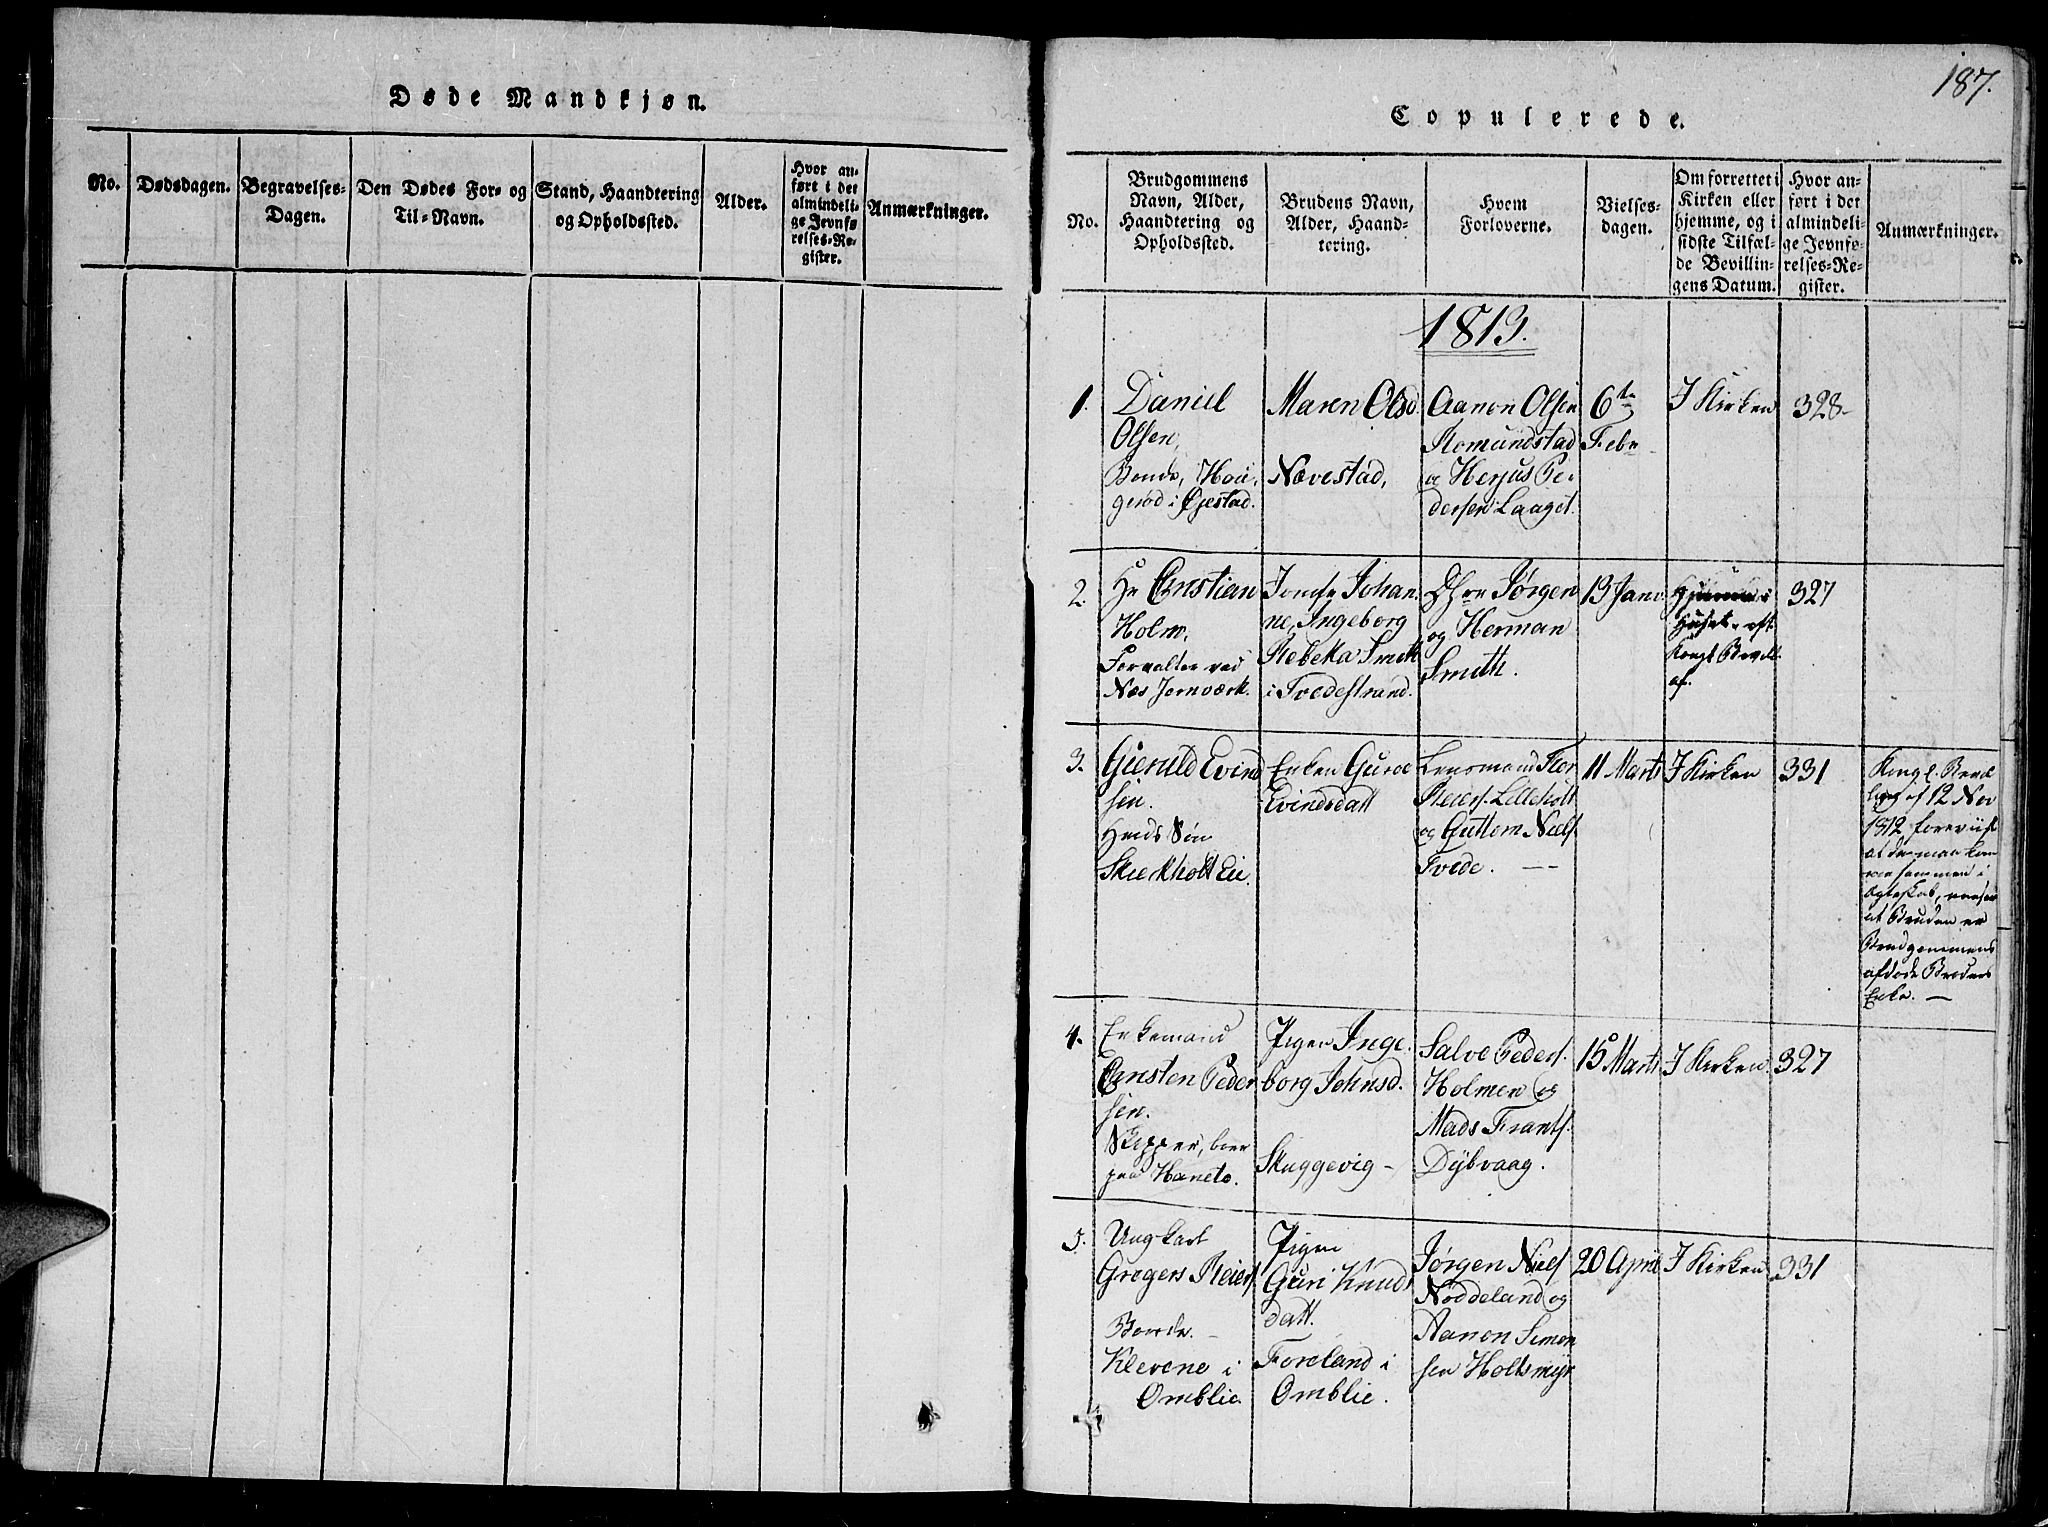 187.
Døde Mandkjøn.
No.
Dødsdagen.
Begravelses-
Dagen.
Den Dødes For- og
Til-Navn.
Stand, Haandtering
og Opholdssted.
Alder.
Hvor an-
ført i det
almindeli-
ge Jevnfø
relses-Re-
gister.
Anmærkninger.
Copulerede.
No.
Brudgommens
Navn, Alder,
Haandtering og
Opholdssted.
Brudens Navn,
Alder, Haand-
tering.
Hvem
Forloverne.
Vielses-
dagen.
Om forrettet i
Kirken eller
hjemme, og i
sidste Tilfæl-
de Bevillin-
gens Datum.
Hvor an-
ført i det
almindeli-
ge Jevnfø-
relses-Re-
gister.
Anmærkninger.
1813.
1.
Daniel
Olsen,
Bonde, Hou-
gerød i Øjestad.
Maren Olsd.
Nævestad,
Aanon Olsen
Romundstad
og Herjus Pe-
dersen Laaget.
6te
Febr
I Kirken
328
2.
Hr Christian
Holm,
Forvalter ved
Næs Jernværk.
Jomfr Johan-
ne, Ingeborg
Rebeka Smith
i Tvedestrand.
DHrr Jørgen
og Herman
Smith.
13 Janr
Huset, eft
Kongl Bevill
af.
327
3.
Gieruld Evind
sen.
Huds Søn
Skierkholt Eie.
Enken Guroe
Evindsdatt
Lensmand Tor
Reiers. Lilleholt
og Guttom Niels.
Tvede. —
11 Marts
I Kirken
331
Kongl. Bevil
ling af 12 Nov
1812 foreviist
at de maa kom
me sammen i
Ægteskab, uanseet
at Bruden er
Brudgommens
afdøde Broders
Enke. —
4.
Enkemand
Christen Peder
sen.
Skipper, boer
paa Hanetø.
Pigen Inge-
borg Johnsd.
Skuggevig —
Salve Peders.
Holmen og
Mads Frants.
Dybvaag.
15 Marts
I Kirken.
327
5.
Ungkarl
Gregers Reiers
Bonde. —
Klevene i
Omblie.
Pigen
Guri Knuds
datt.
Foreland i
Omblie.
Jørgen Niels
Nøddeland og
Aanon Simon
sen Holtsmyr
20 April
I Kirken
331